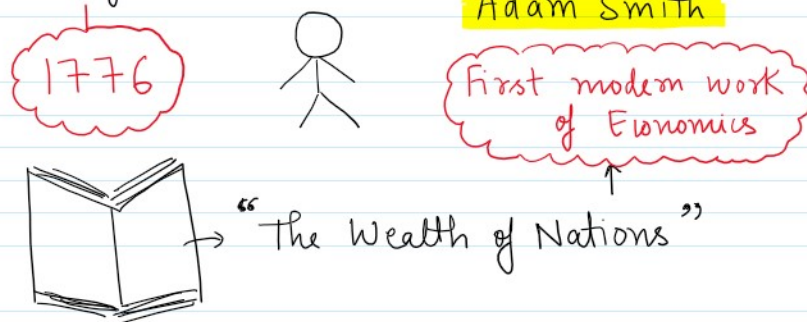 Adam Smith
1776
First modern work
of Economics
"The Wealth of Nations"